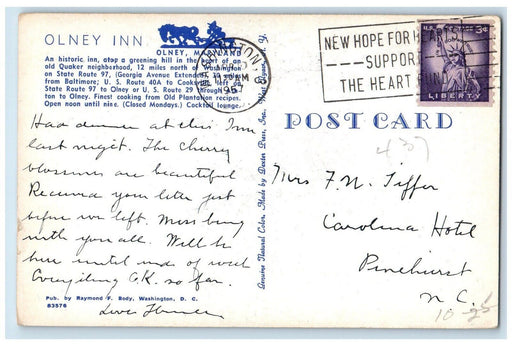 OLNEY INN
OLNEY, MARYLAND
An historic inn, atop a greening hill in the heart of an
old Quaker neighborhood, 12 miles north of Washington
on State Route 97, (Georgia Avenue Extended), 30 miles
from Baltimore; U. S. Route 40A to Cooksville, left on
State Route 97 to Olney or U. S. Route 29 through
ton to Olney. Finest cooking from Old Plantation recipes.
Open noon until nine. (Closed Mondays.) Cocktail lounge.
Had dinner at this Inn
last night. The cherry
blossoms are beautiful
Received your letter just
before we left. Miss being
with you all. Will be
here until end of week
Everything O.K. so far.
Love
Pub. by Raymond F. Body, Washington, D. C.
83576
Genuine Natural Color, Made by Dexter Press, Inc. West Nyack, N. Y.
NEW HOPE FOR
SUPPORT
THE HEART
U.S. 3¢
LIBERTY
POST CARD
437
Mrs F. N.
Carolina Hotel
Pinehurst
N.C.